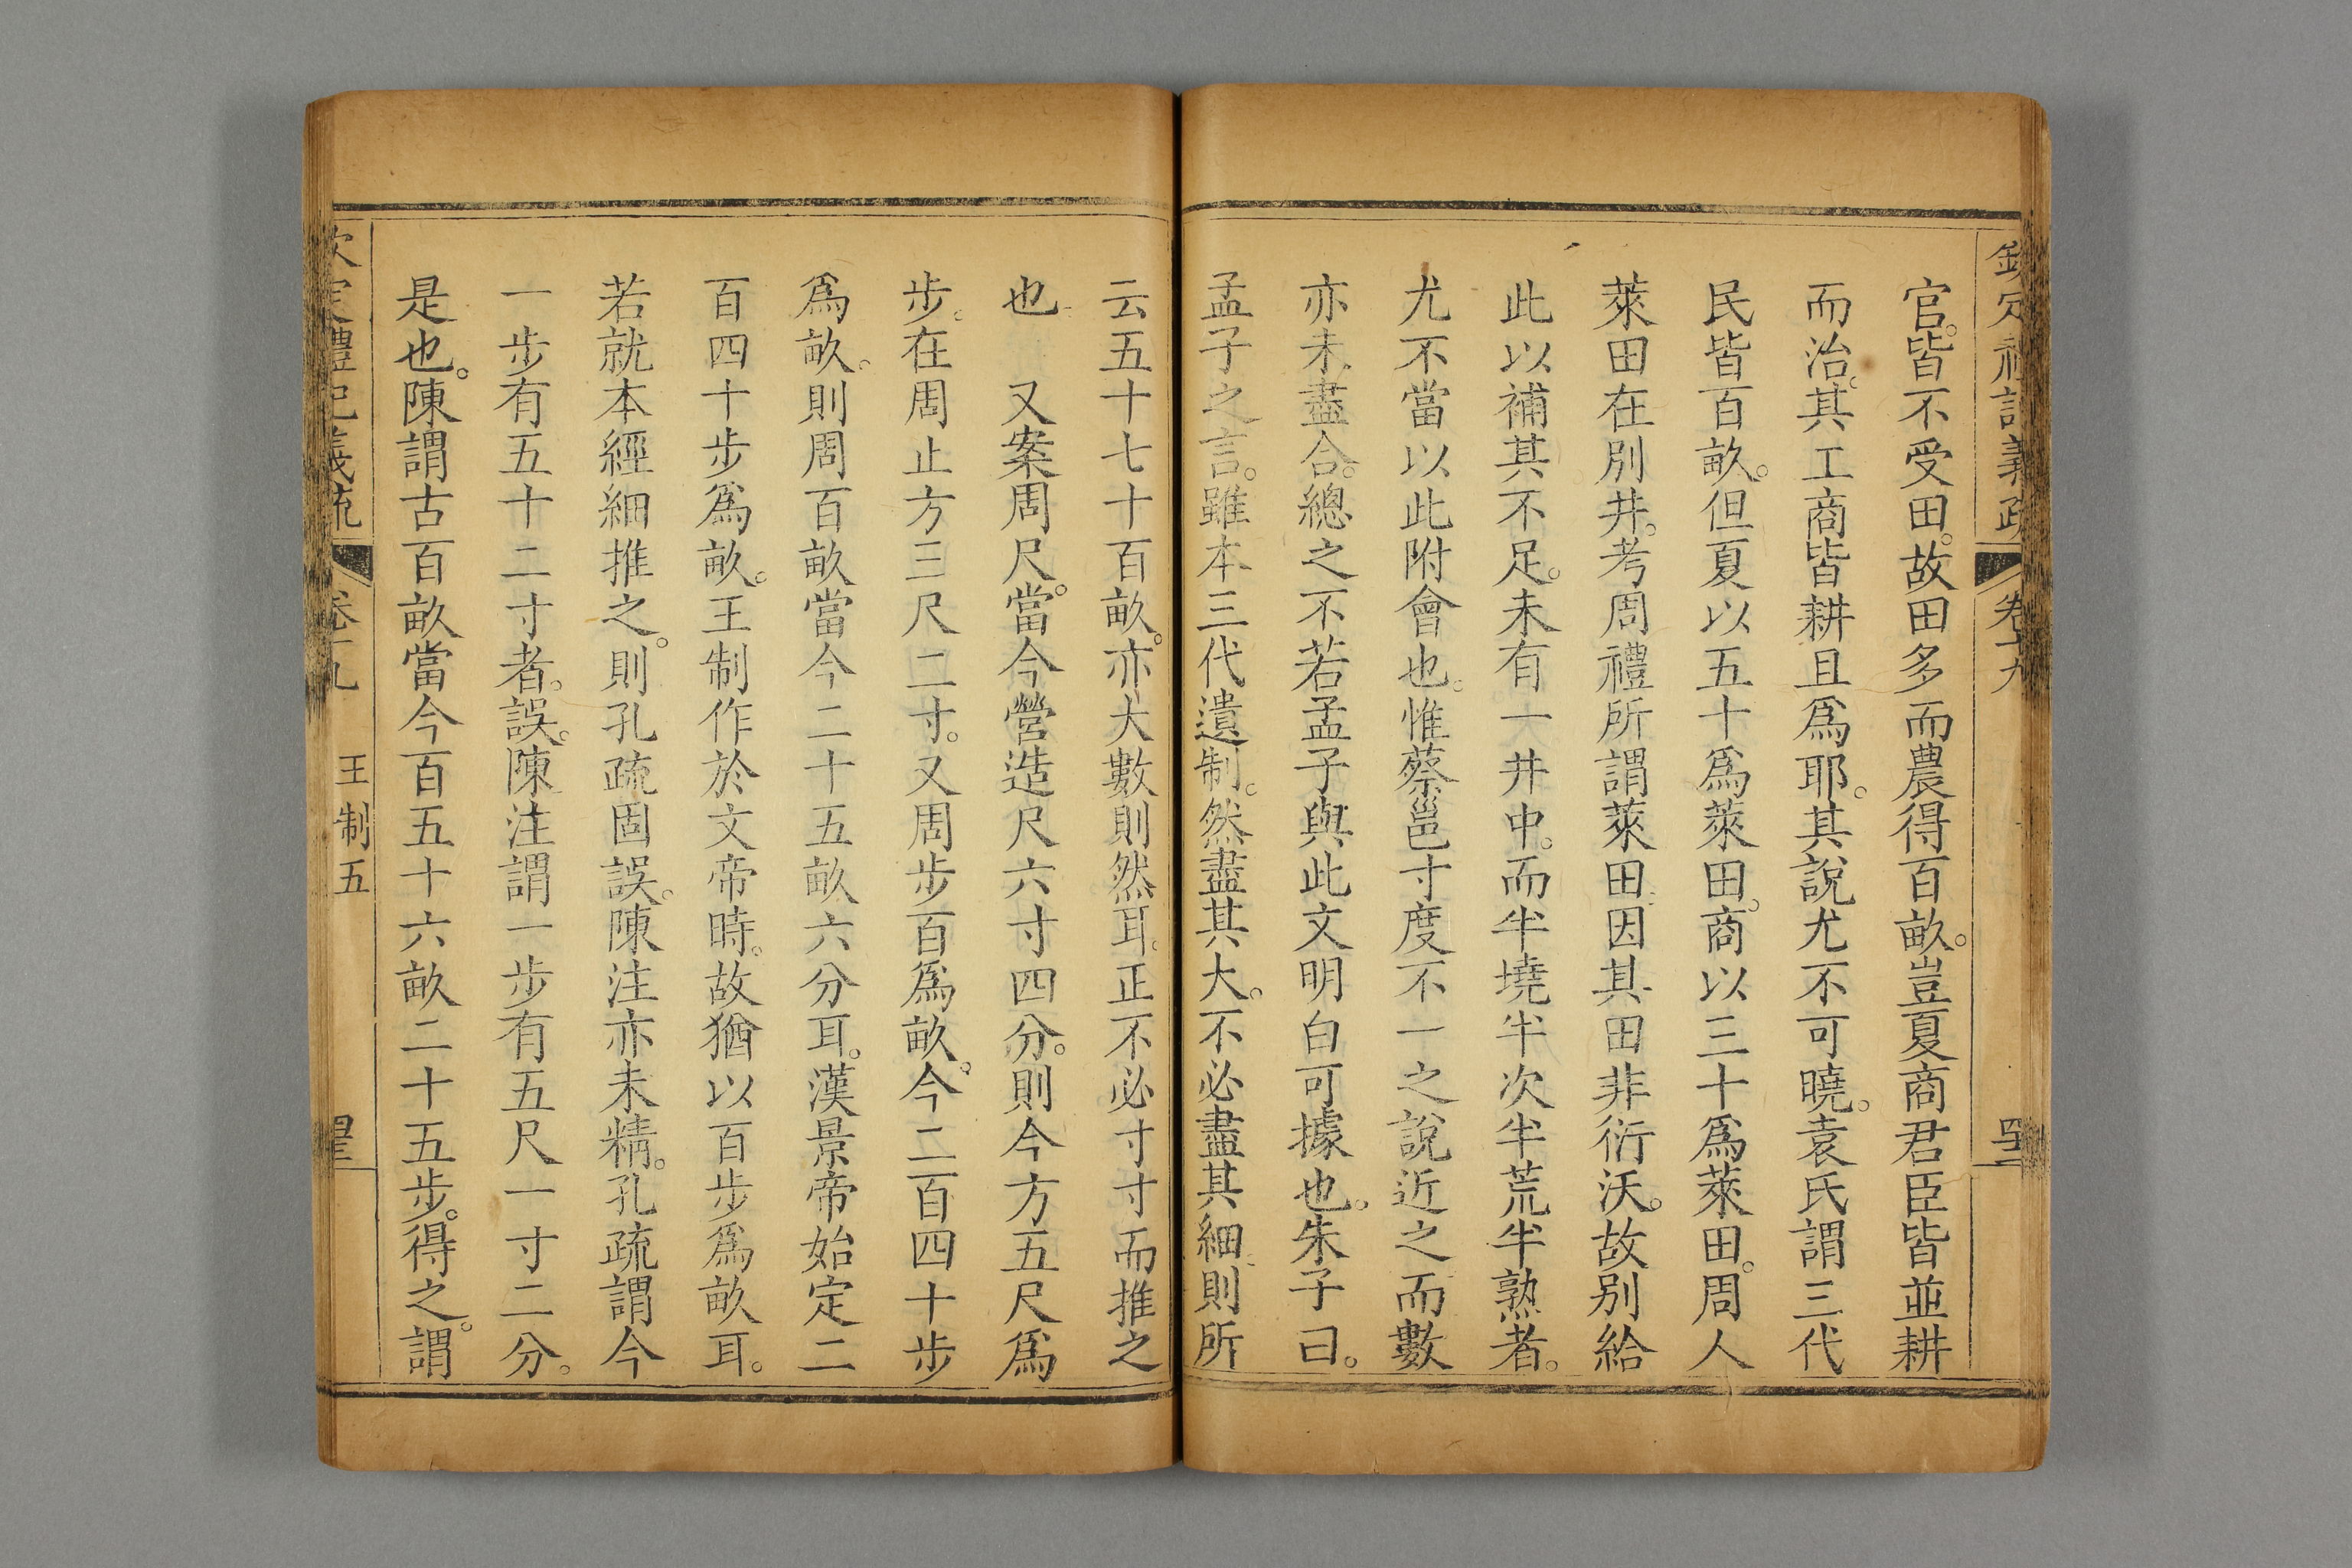 欽定禮記義疏 卷十九
官。皆不受田。故田多而農得百畝。豈夏商君臣皆並耕
而治。其工商皆耕且爲耶。其說尤不可曉。袁氏謂三代
民皆百畝。但夏以五十爲萊田。商以三十爲萊田。周人
萊田在別井。考周禮所謂萊田因其田非衍沃。故別給
此以補其不足。未有一井中。而半墝半次半荒半熟者。
尤不當以此附會也。惟蔡邕寸度不一之說近之而數
亦未盡合。總之不若孟子與此文明白可據也。朱子曰。
孟子之言。雖本三代遺制。然盡其大。不必盡其細則所
云五十七十百畝。亦大數則然耳。正不必寸寸而推之
也 又案周尺。當今營造尺六寸四分。則今方五尺爲
步。在周止方三尺二寸。又周步百爲畝。今二百四十步
爲畝。則周百畝當今二十五畝六分耳。漢景帝始定二
百四十步爲畝。王制作於文帝時。故猶以百步爲畝耳。
若就本經細推之。則孔疏固誤。陳注亦未精。孔疏謂今
一步有五十二寸者。誤。陳注謂一步有五尺一寸二分。
是也。陳謂古百畝當今百五十六畝二十五步。得之。謂
欽定禮記義疏 卷十九 王制五